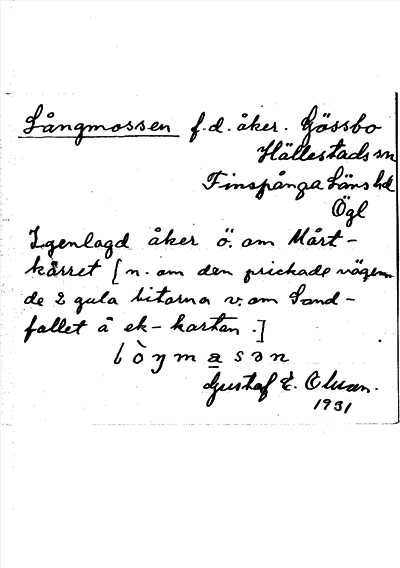 Långmossen f.d. åker. Gössbo
Hällestads sn
Finspånga läns hd
Ögl
Igenlagd åker ö. om Mårt-
kärret [n. om den prickade vägen
de 2 gula bitarna v. om Sand-
fallet å ek-kartan.]
lòŋmasən
Gustaf E.
1931